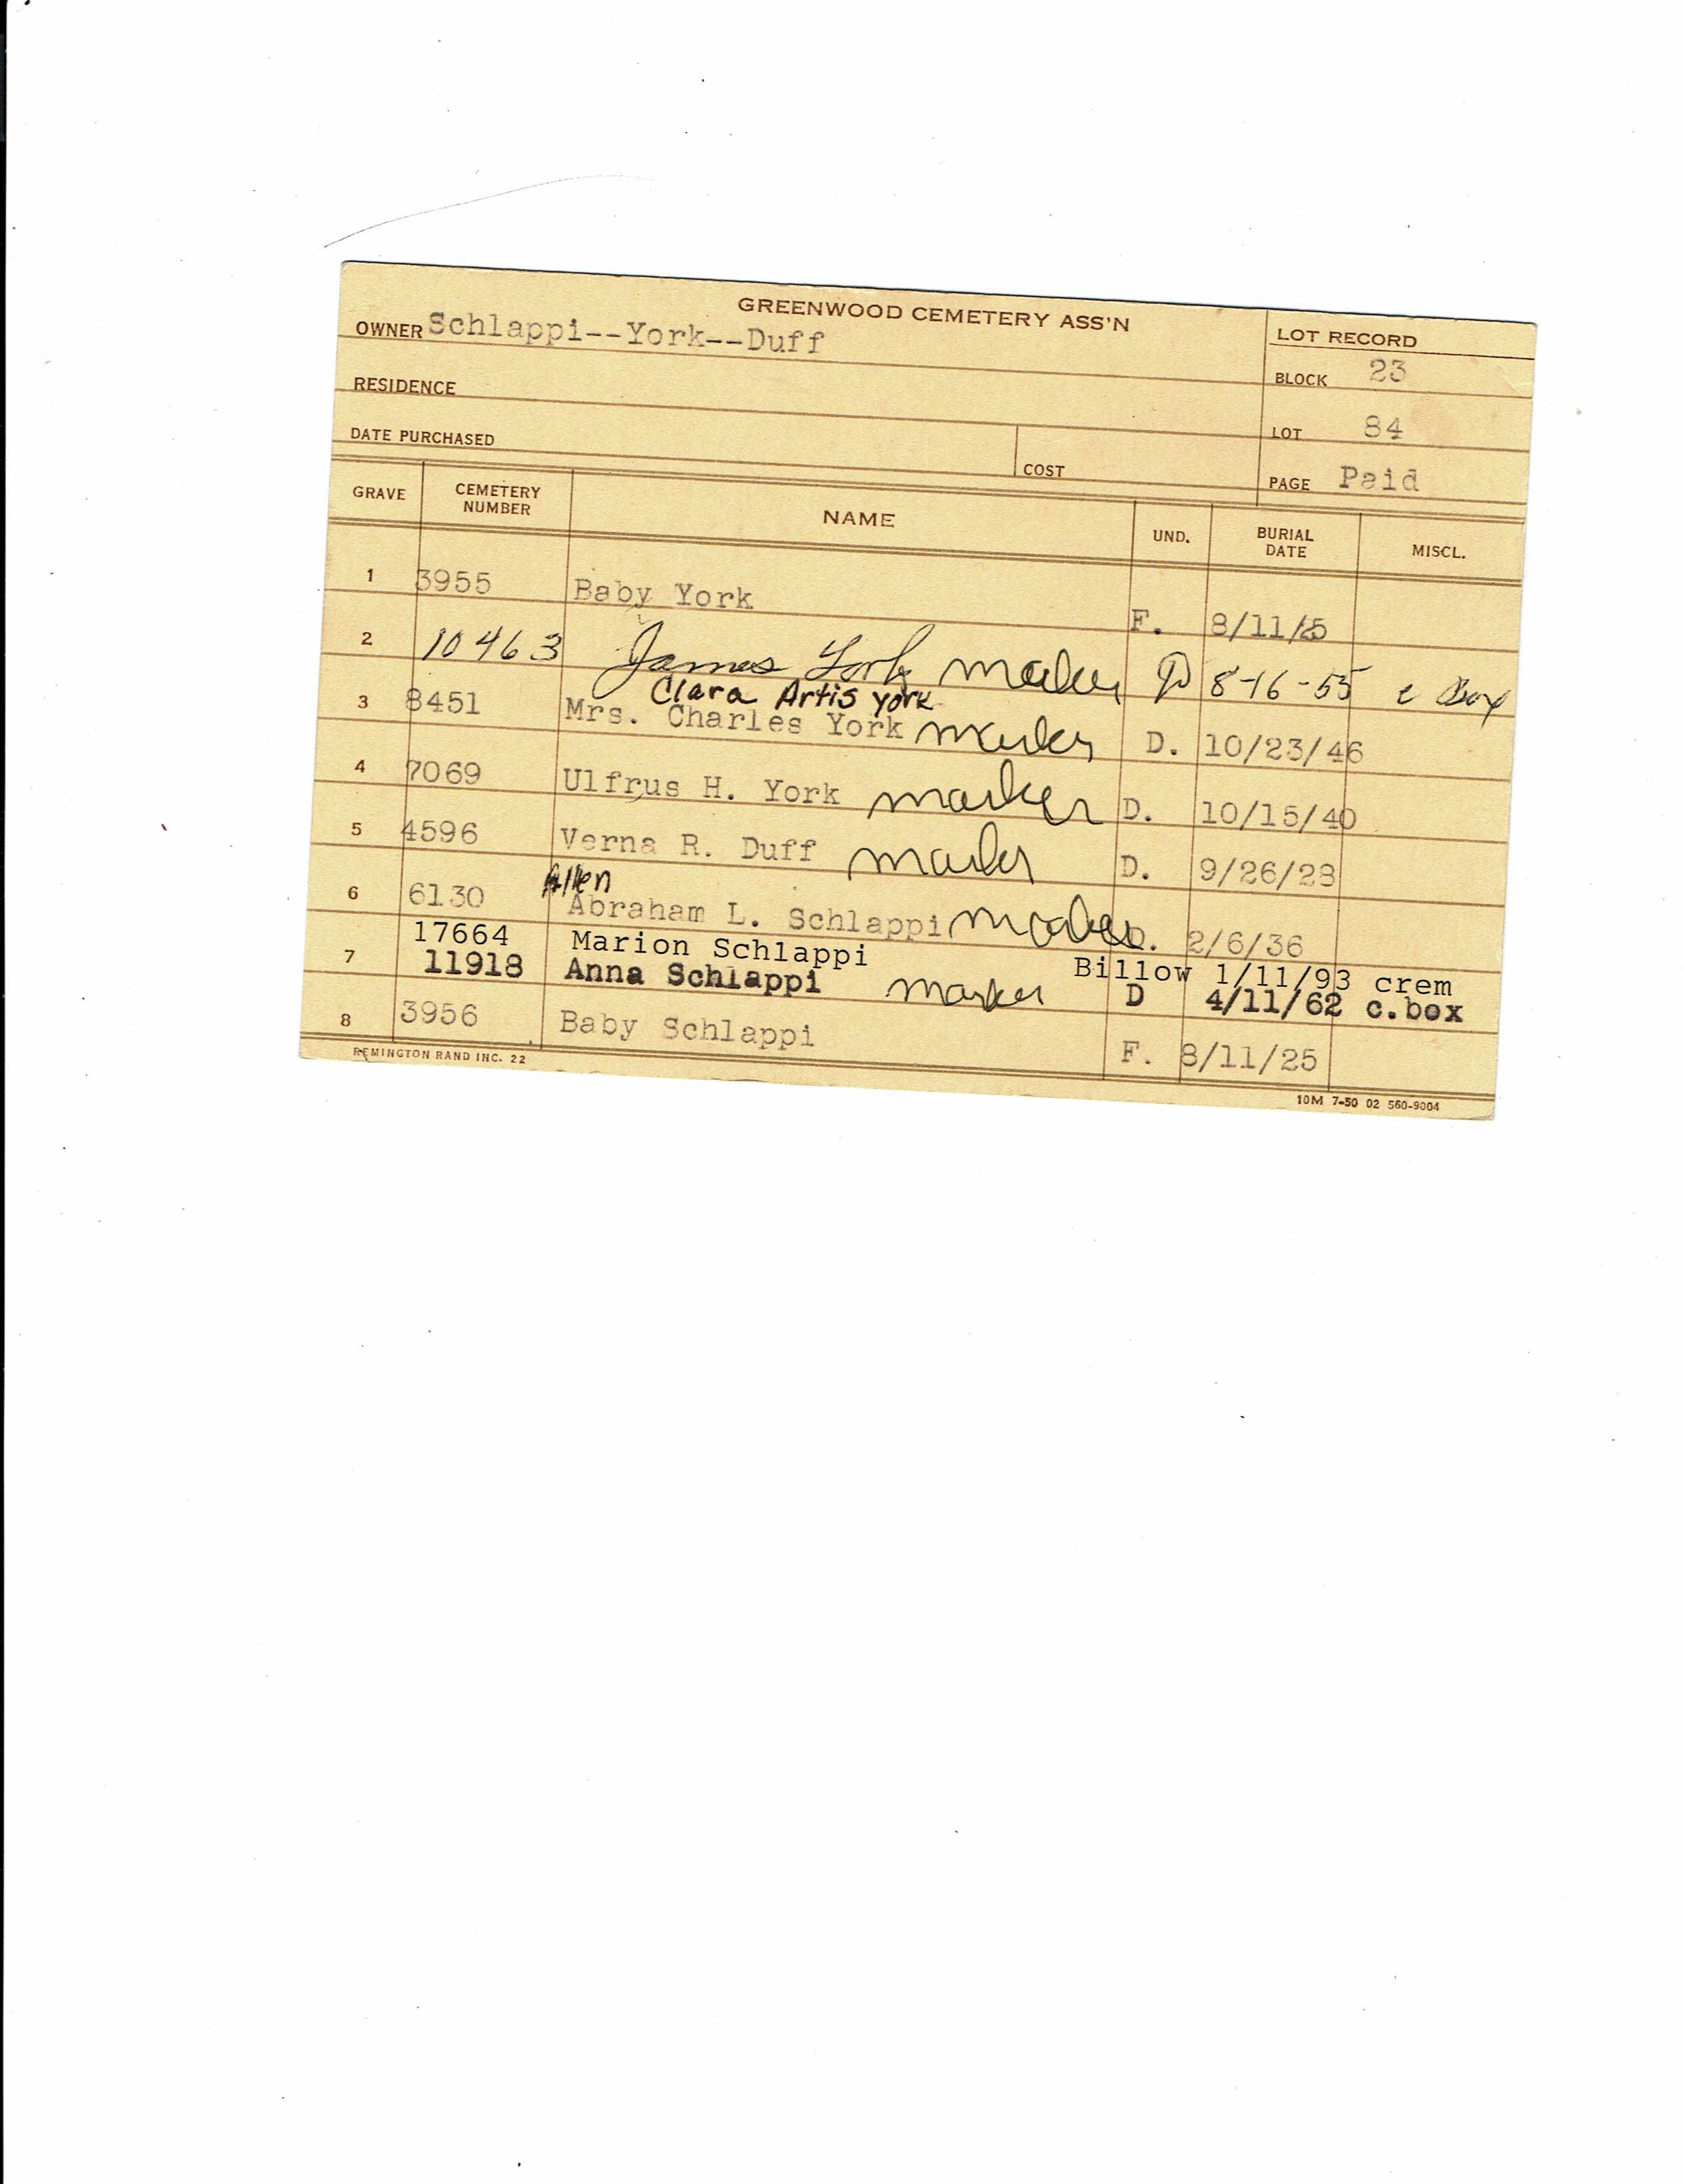 GREENWOOD CEMETERY ASS'N
OWNER Schlappi--York--Duff
LOT RECORD
RESIDENCE
BLOCK 23
DATE PURCHASED
COST
LOT 84
PAGE Paid
GRAVE CEMETERY NUMBER NAME UND. BURIAL DATE MISCL.
1 3955 Baby York F. 8/11/25
2 10463 James York marker D 8-16-55 c Box
Clara Artis York
3 8451 Mrs. Charles York marker D. 10/23/46
4 7069 Ulfrus H. York marker D. 10/15/40
5 4596 Verna R. Duff marker D. 9/26/28
Allen
6 6130 Abraham L. Schlappi marker D. 2/6/36
17664 Marion Schlappi Billow 1/11/93 crem
7 11918 Anna Schlappi marker D 4/11/62 c.box
8 3956 Baby Schlappi F. 8/11/25
REMINGTON RAND INC. 22
10M 7-50 02 560-9004